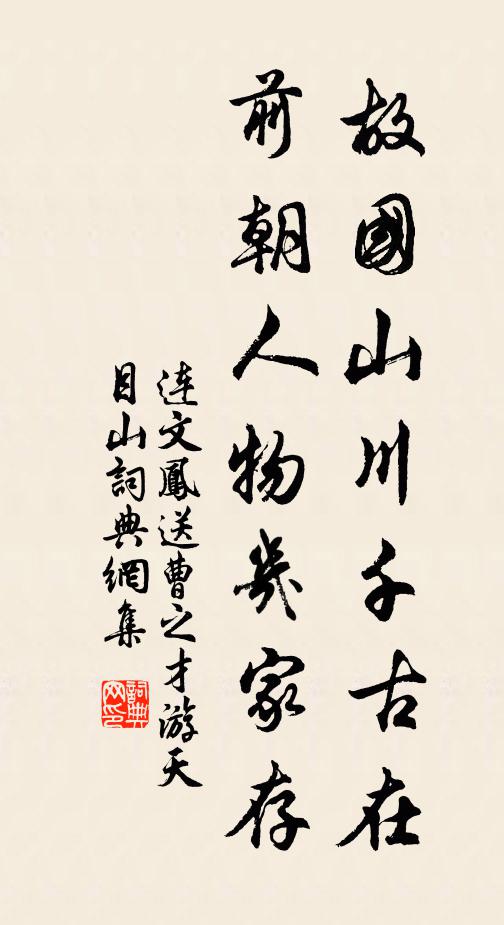 故國山川千古在
前朝人物幾家存
連文鳳送曹之才游天
目山詞典網集
詞典
网印